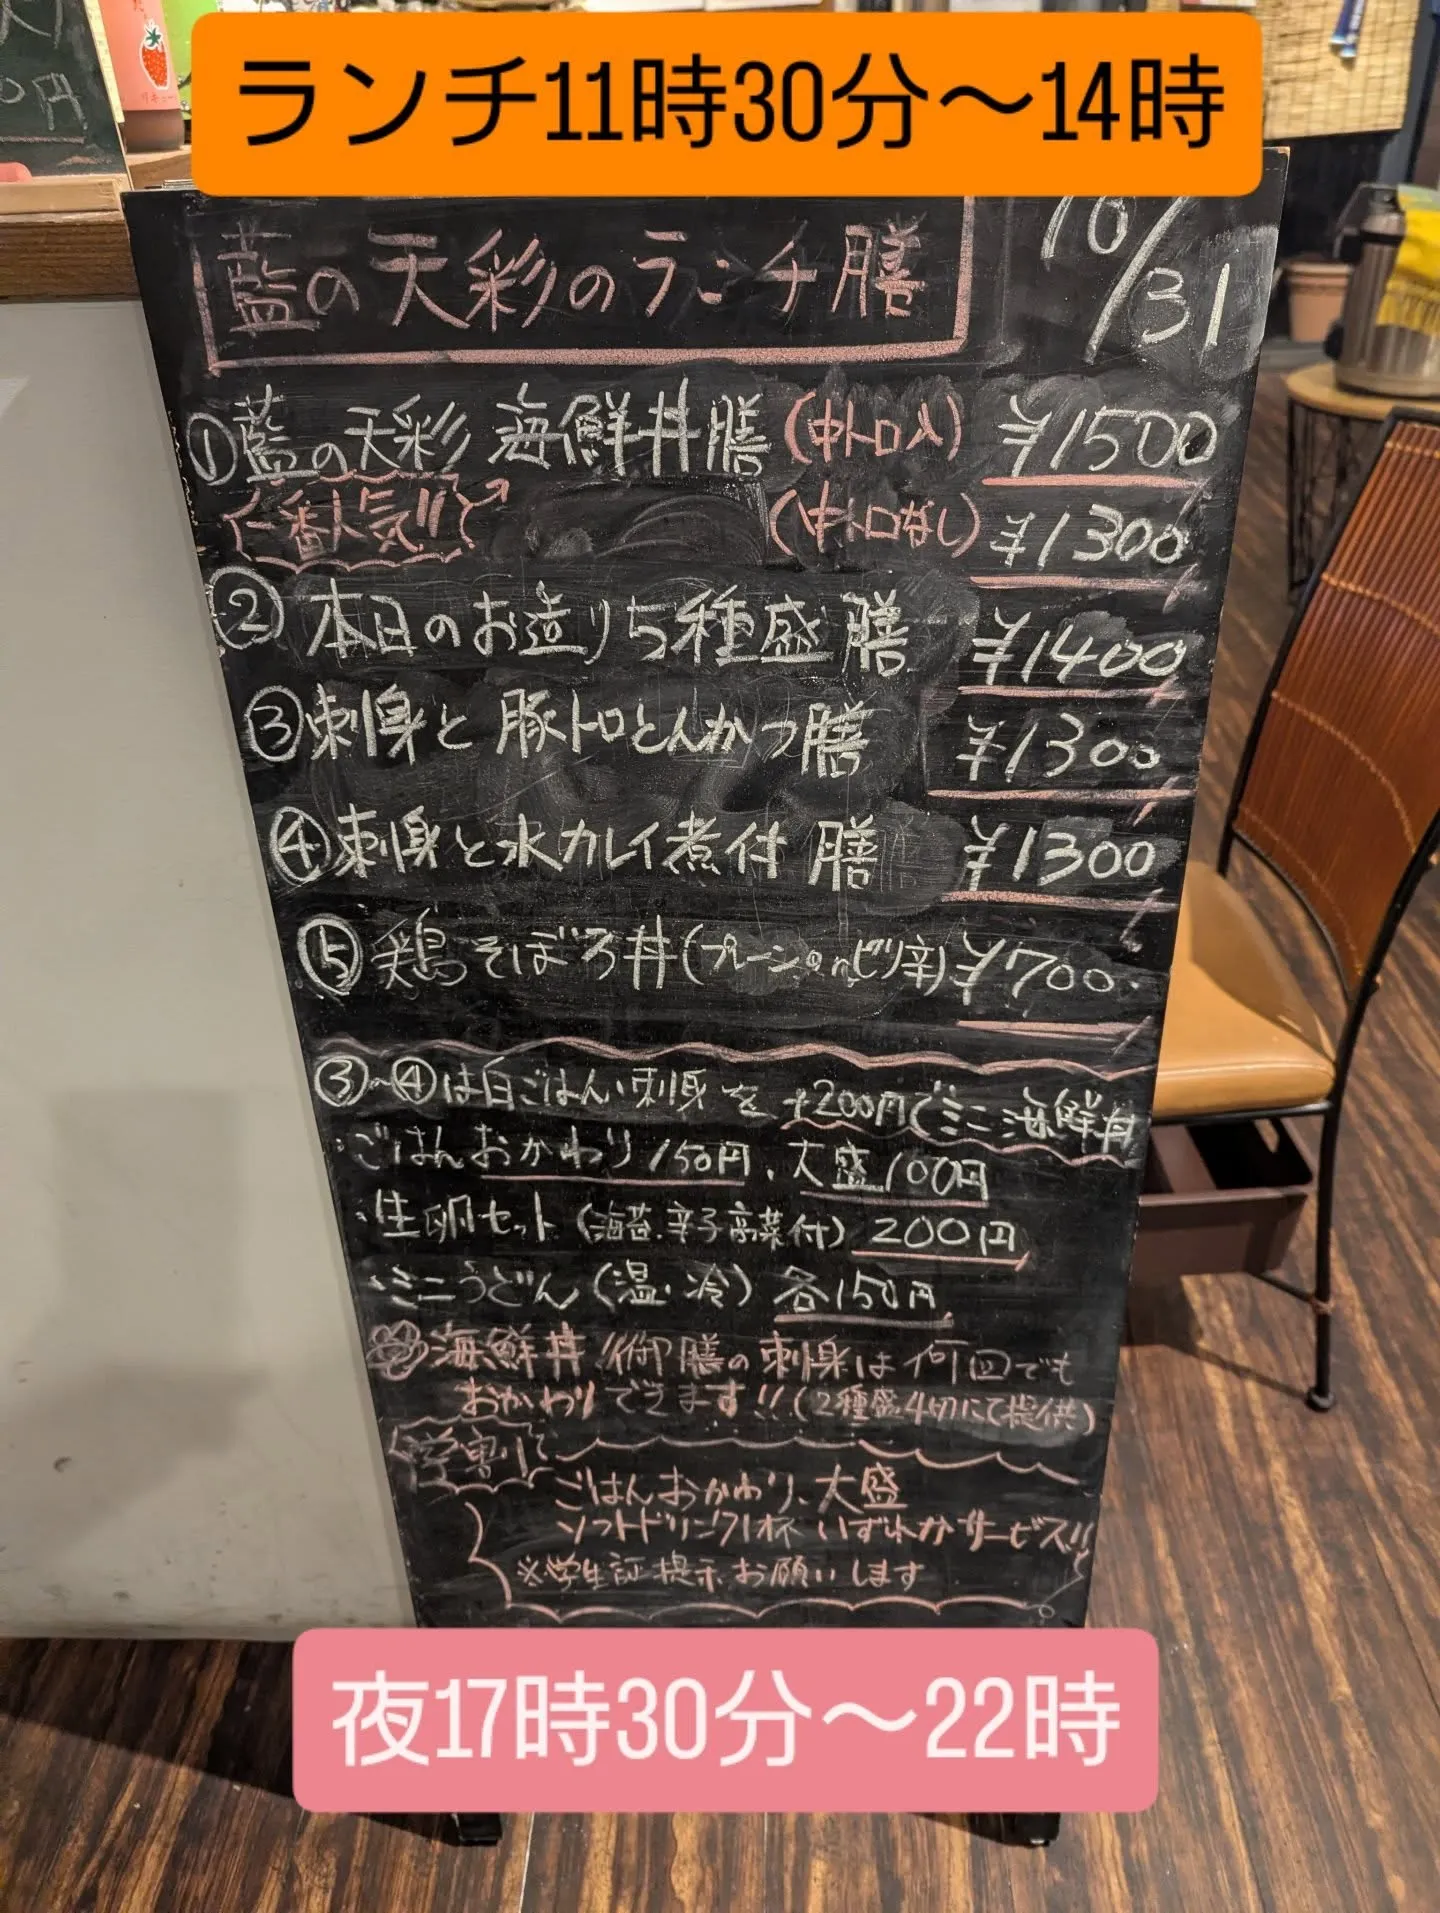 ランチ11時30分〜14時
円
藍の天彩のランチ膳
10/31
①藍の天彩 海鮮丼膳(中トロ入) ¥1500
一番人気!! (中トロ無し) ¥1300
②本日のお造り5種盛膳 ¥1400
③刺身と豚トロとんかつ膳 ¥1300
④刺身と水カレイ煮付膳 ¥1300
⑤鶏そぼろ丼(プレーンorピリ辛) ¥700
③~④は白ごはん、刺身を+200円でミニ海鮮丼
・ごはんおかわり150円、大盛100円
・生卵セット(海苔・辛子高菜付)200円
・ミニうどん(温・冷)各150円
海鮮丼、御膳の刺身は何回でも
おかわりできます!!(2種盛4切にて提供)
学割
ごはんおかわり、大盛
ソフトドリンク1杯 いずれかサービス!!
※学生証提示お願いします
夜17時30分〜22時